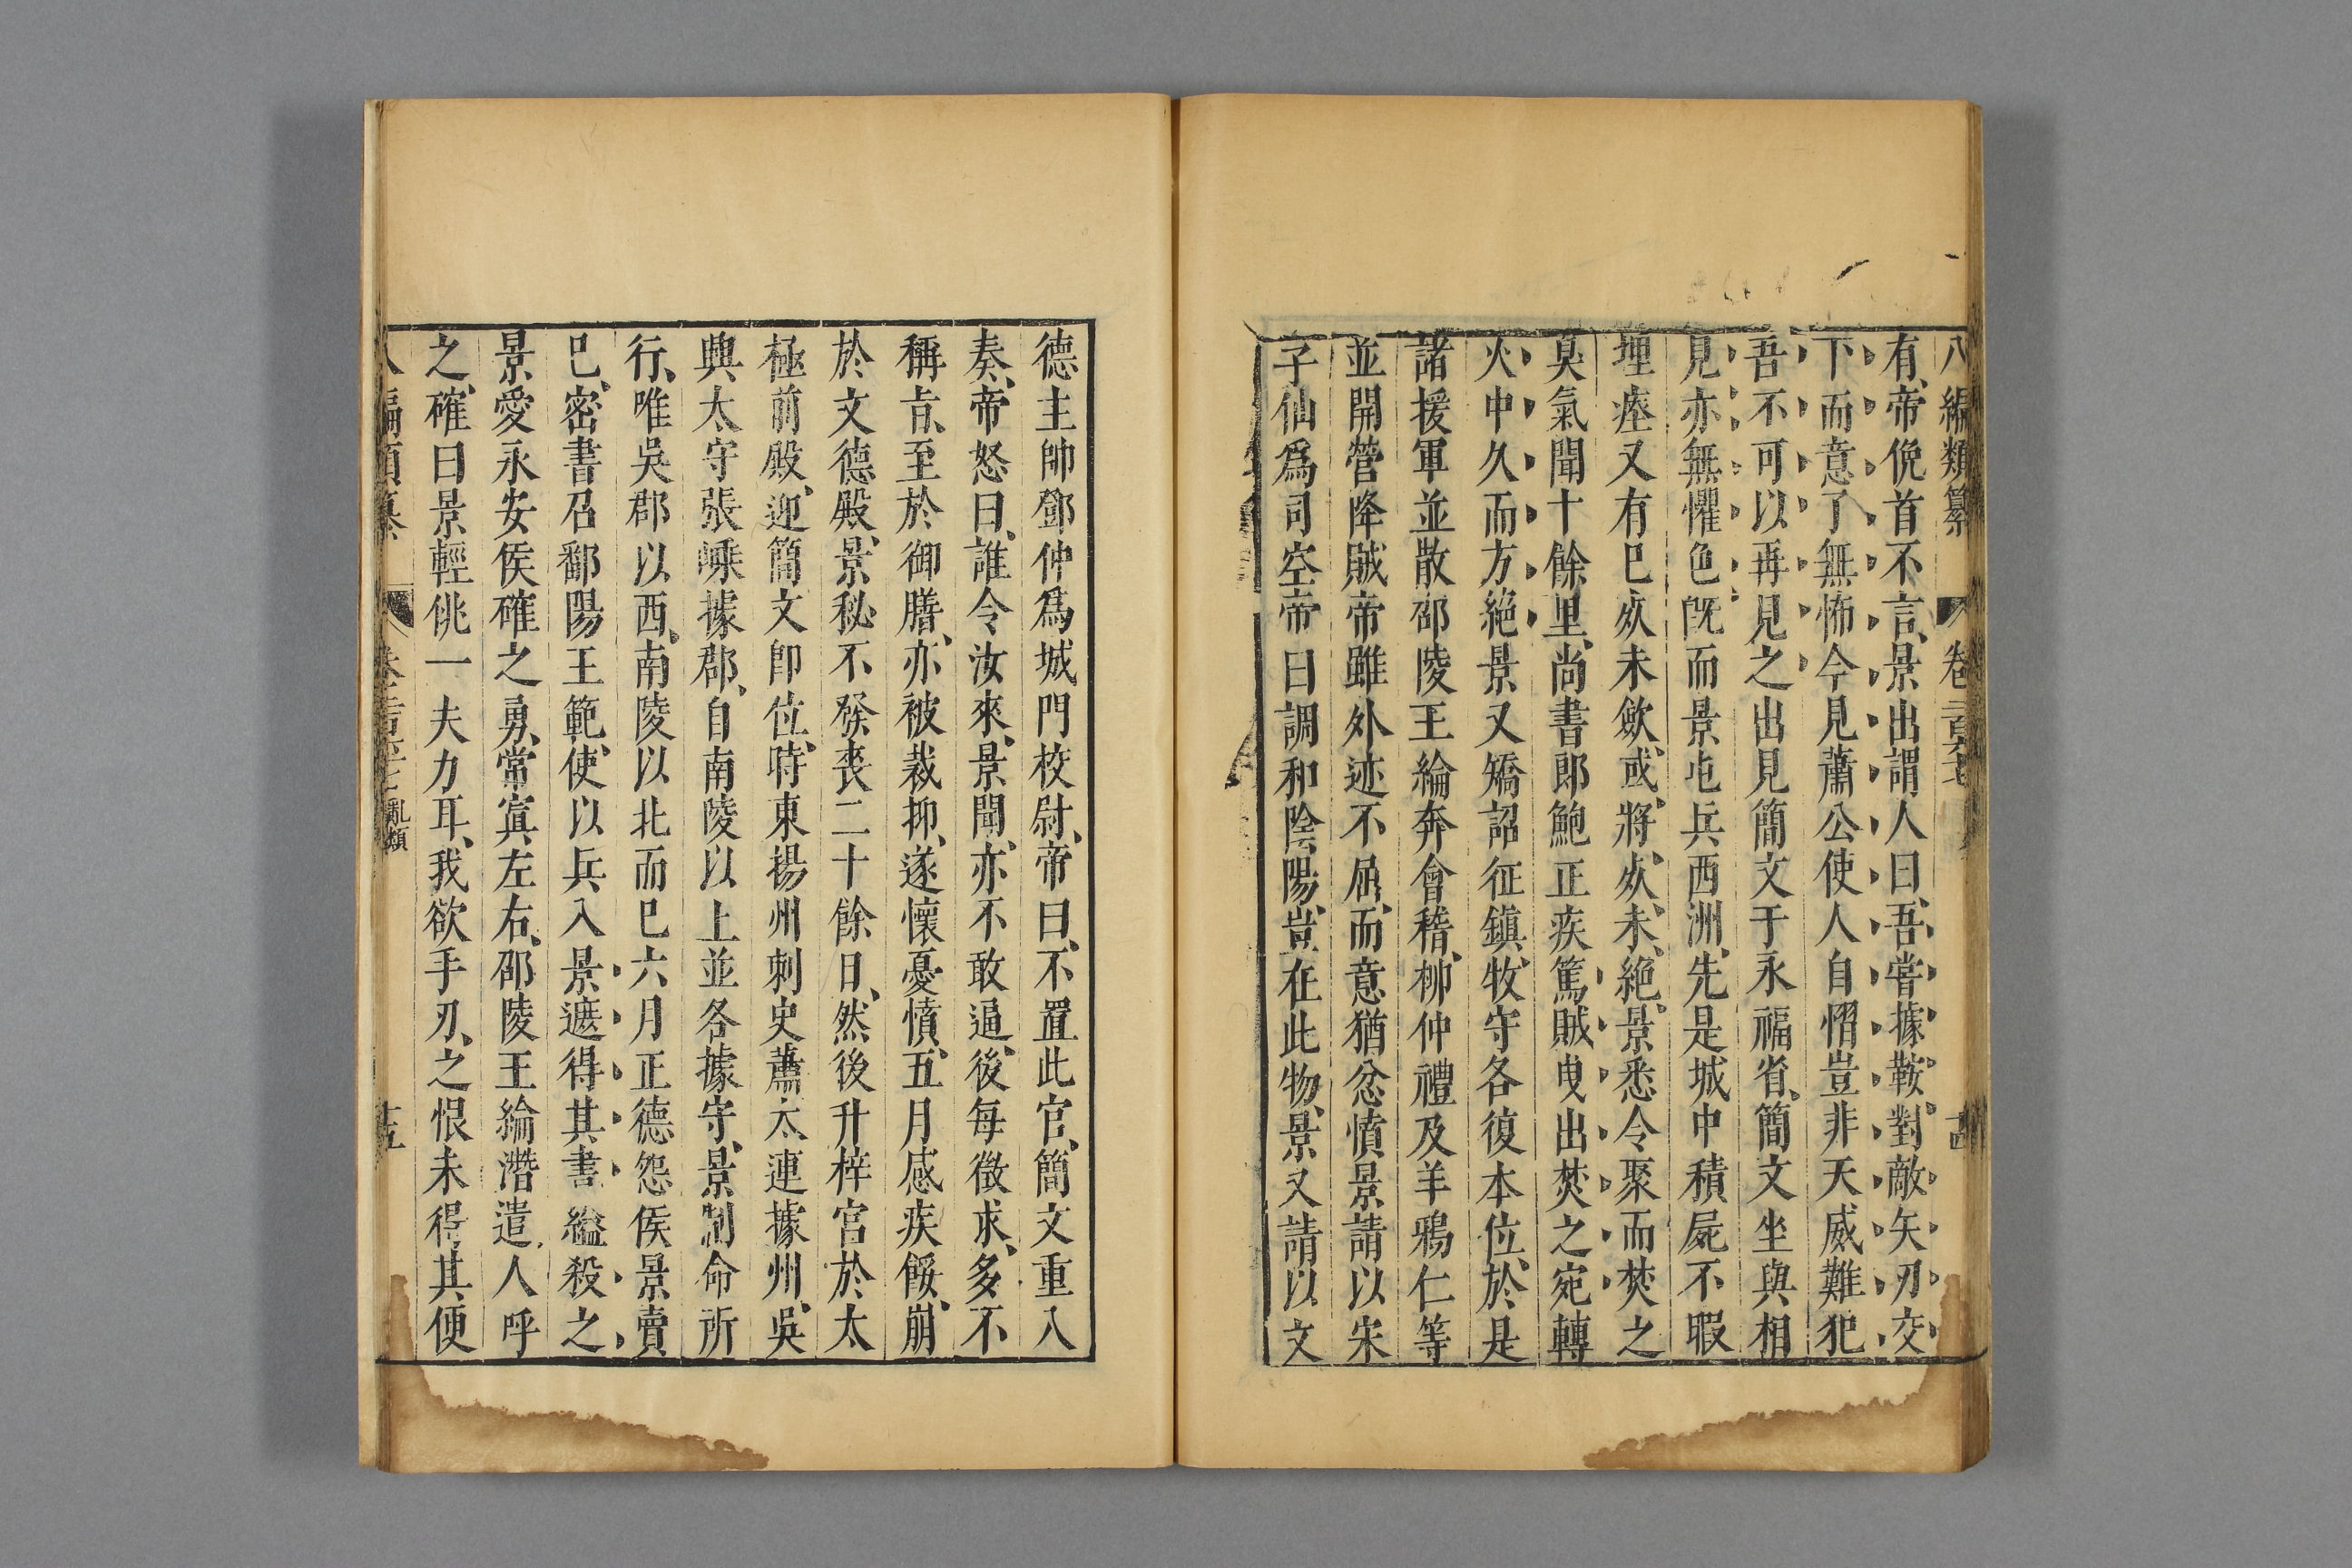 八編類纂 卷二百六十七 十四
有帝俛首不言景出謂人曰吾嘗據鞍對敵矢刃交
下而意了無怖今見蕭公使人自慴豈非天威難犯
吾不可以再見之出見簡文于永福省簡文坐與相
見亦無懼色旣而景屯兵西洲先是城中積屍不暇
埋瘞又有巳㱠未歛或將㱠未絕景悉令聚而焚之
臭氣聞十餘里尚書郎鮑正疾篤賊曳出焚之宛轉
火中久而方絕景又矯詔征鎮牧守各復本位於是
諸援軍並散邵陵王綸奔會稽柳仲禮及羊鴉仁等
並開營降賊帝雖外迹不屈而意猶忿憤景請以宋
子仙爲司空帝曰調和陰陽豈在此物景又請以文
德主帥鄧仲爲城門校尉帝曰不置此官簡文重入
奏帝怒曰誰令汝來景聞亦不敢逼後每徵求多不
稱旨至於御膳亦被裁抑遂懷憂憤五月感疾餒崩
於文德殿景秘不發喪二十餘日然後升梓宮於太
極前殿迎簡文卽位時東揚州刺史蕭大連據州吳
興太守張嵊據郡自南陵以上並各據守景制命所
行唯吳郡以西南陵以北而巳六月正德怨侯景賣
巳密書召鄱陽王範使以兵入景遮得其書縊殺之
景愛永安侯確之勇常寘左右邵陵王綸潛遣人呼
之確曰景輕佻一夫力耳我欲手刃之恨未得其便
編類纂 亂類 十五